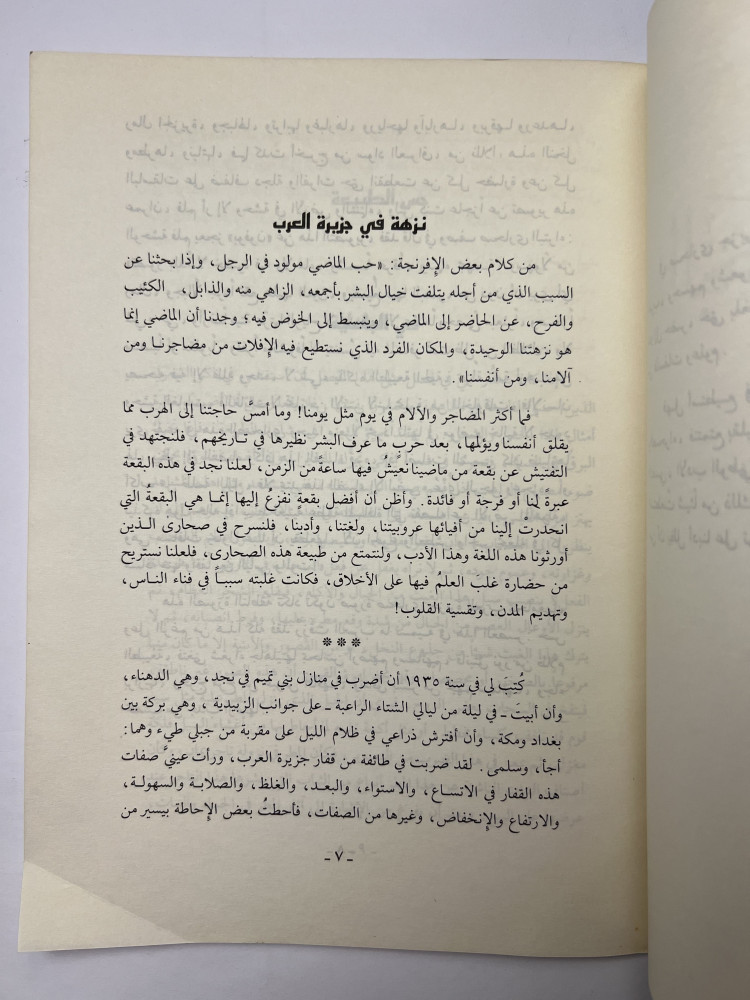 نزهة في جزيرة العرب
من كلام بعض الإفرنجة: «حب الماضي مولود في الرجل، وإذا بحثنا عن
السبب الذي من أجله يتلفت خيال البشر بأجمعه، الزاهي منه والذابل، الكئيب
والفرح، عن الحاضر إلى الماضي، وينبسط إلى الخوض فيه؛ وجدنا أن الماضي إنما
هو نزهتنا الوحيدة، والمكان الفرد الذي نستطيع فيه الإفلات من مضاجرنا ومن
آلامنا، ومن أنفسنا».
فما أكثر المضاجر والآلام في يوم مثل يومنا! وما أمسَّ حاجتنا إلى الهرب مما
يقلق أنفسنا ويؤلمها، بعد حربٍ ما عرف البشر نظيرها في تاريخهم، فلنجتهد في
التفتيش عن بقعة من ماضينا نعيشُ فيها ساعةً من الزمن، لعلنا نجد في هذه البقعة
عبرةً لنا أو فرجة أو فائدة. وأظن أن أفضل بقعةٍ نفزعُ إليها إنما هي البقعةُ التي
انحدرتْ إلينا من أفيائها عروبيتنا، ولغتنا، وأدبنا، فلنسرح في صحارى الذين
أورثونا هذه اللغة وهذا الأدب، ولنتمتع من طبيعة هذه الصحارى، فلعلنا نستريح
من حضارة غلبَ العلمُ فيها على الأخلاق، فكانت غلبته سبباً في فناء الناس،
وتهديم المدن، وتقسية القلوب!
* * *
كُتِبَ لي في سنة ١٩٣٥ أن أضرب في منازل بني تميم في نجد، وهي الدهناء،
وأن أبيتَ ـ في ليلة من ليالي الشتاء الراعبة ـ على جوانب الزبيدية، وهي بركة بين
بغداد ومكة، وأن أفترش ذراعي في ظلام الليل على مقربة من جبلي طيء وهما:
أجأ، وسلمى. لقد ضربت في طائفة من قفار جزيرة العرب، ورأت عينيَّ صفات
هذه القفار في الاتساع، والاستواء، والبعد، والغلظ، والصلابة والسهولة،
والارتفاع والإنخفاض، وغيرها من الصفات، فأحطتُ بعض الإحاطة بيسير من
ـ ٧ ـ